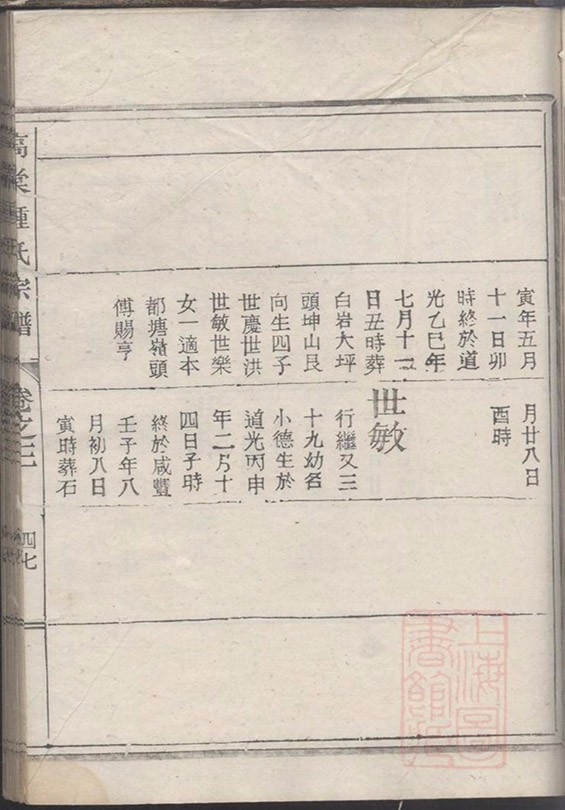 寅年五月
十一日卯
時終於道
光乙巳年
七月十一
日丑時葬
白岩大坪
頭坤山艮
向生四子
世慶世洪
世敏世樂
女一適本
都塘嶺頭
傅賜亨
月廿八日
酉時
世敏
行繼又三
十九幼名
小德生於
道光丙申
年二月十
四日子時
終於咸豐
壬子年八
月初八日
寅時葬石
高棠鍾氏宗譜
卷之
四七
上海圖書館藏